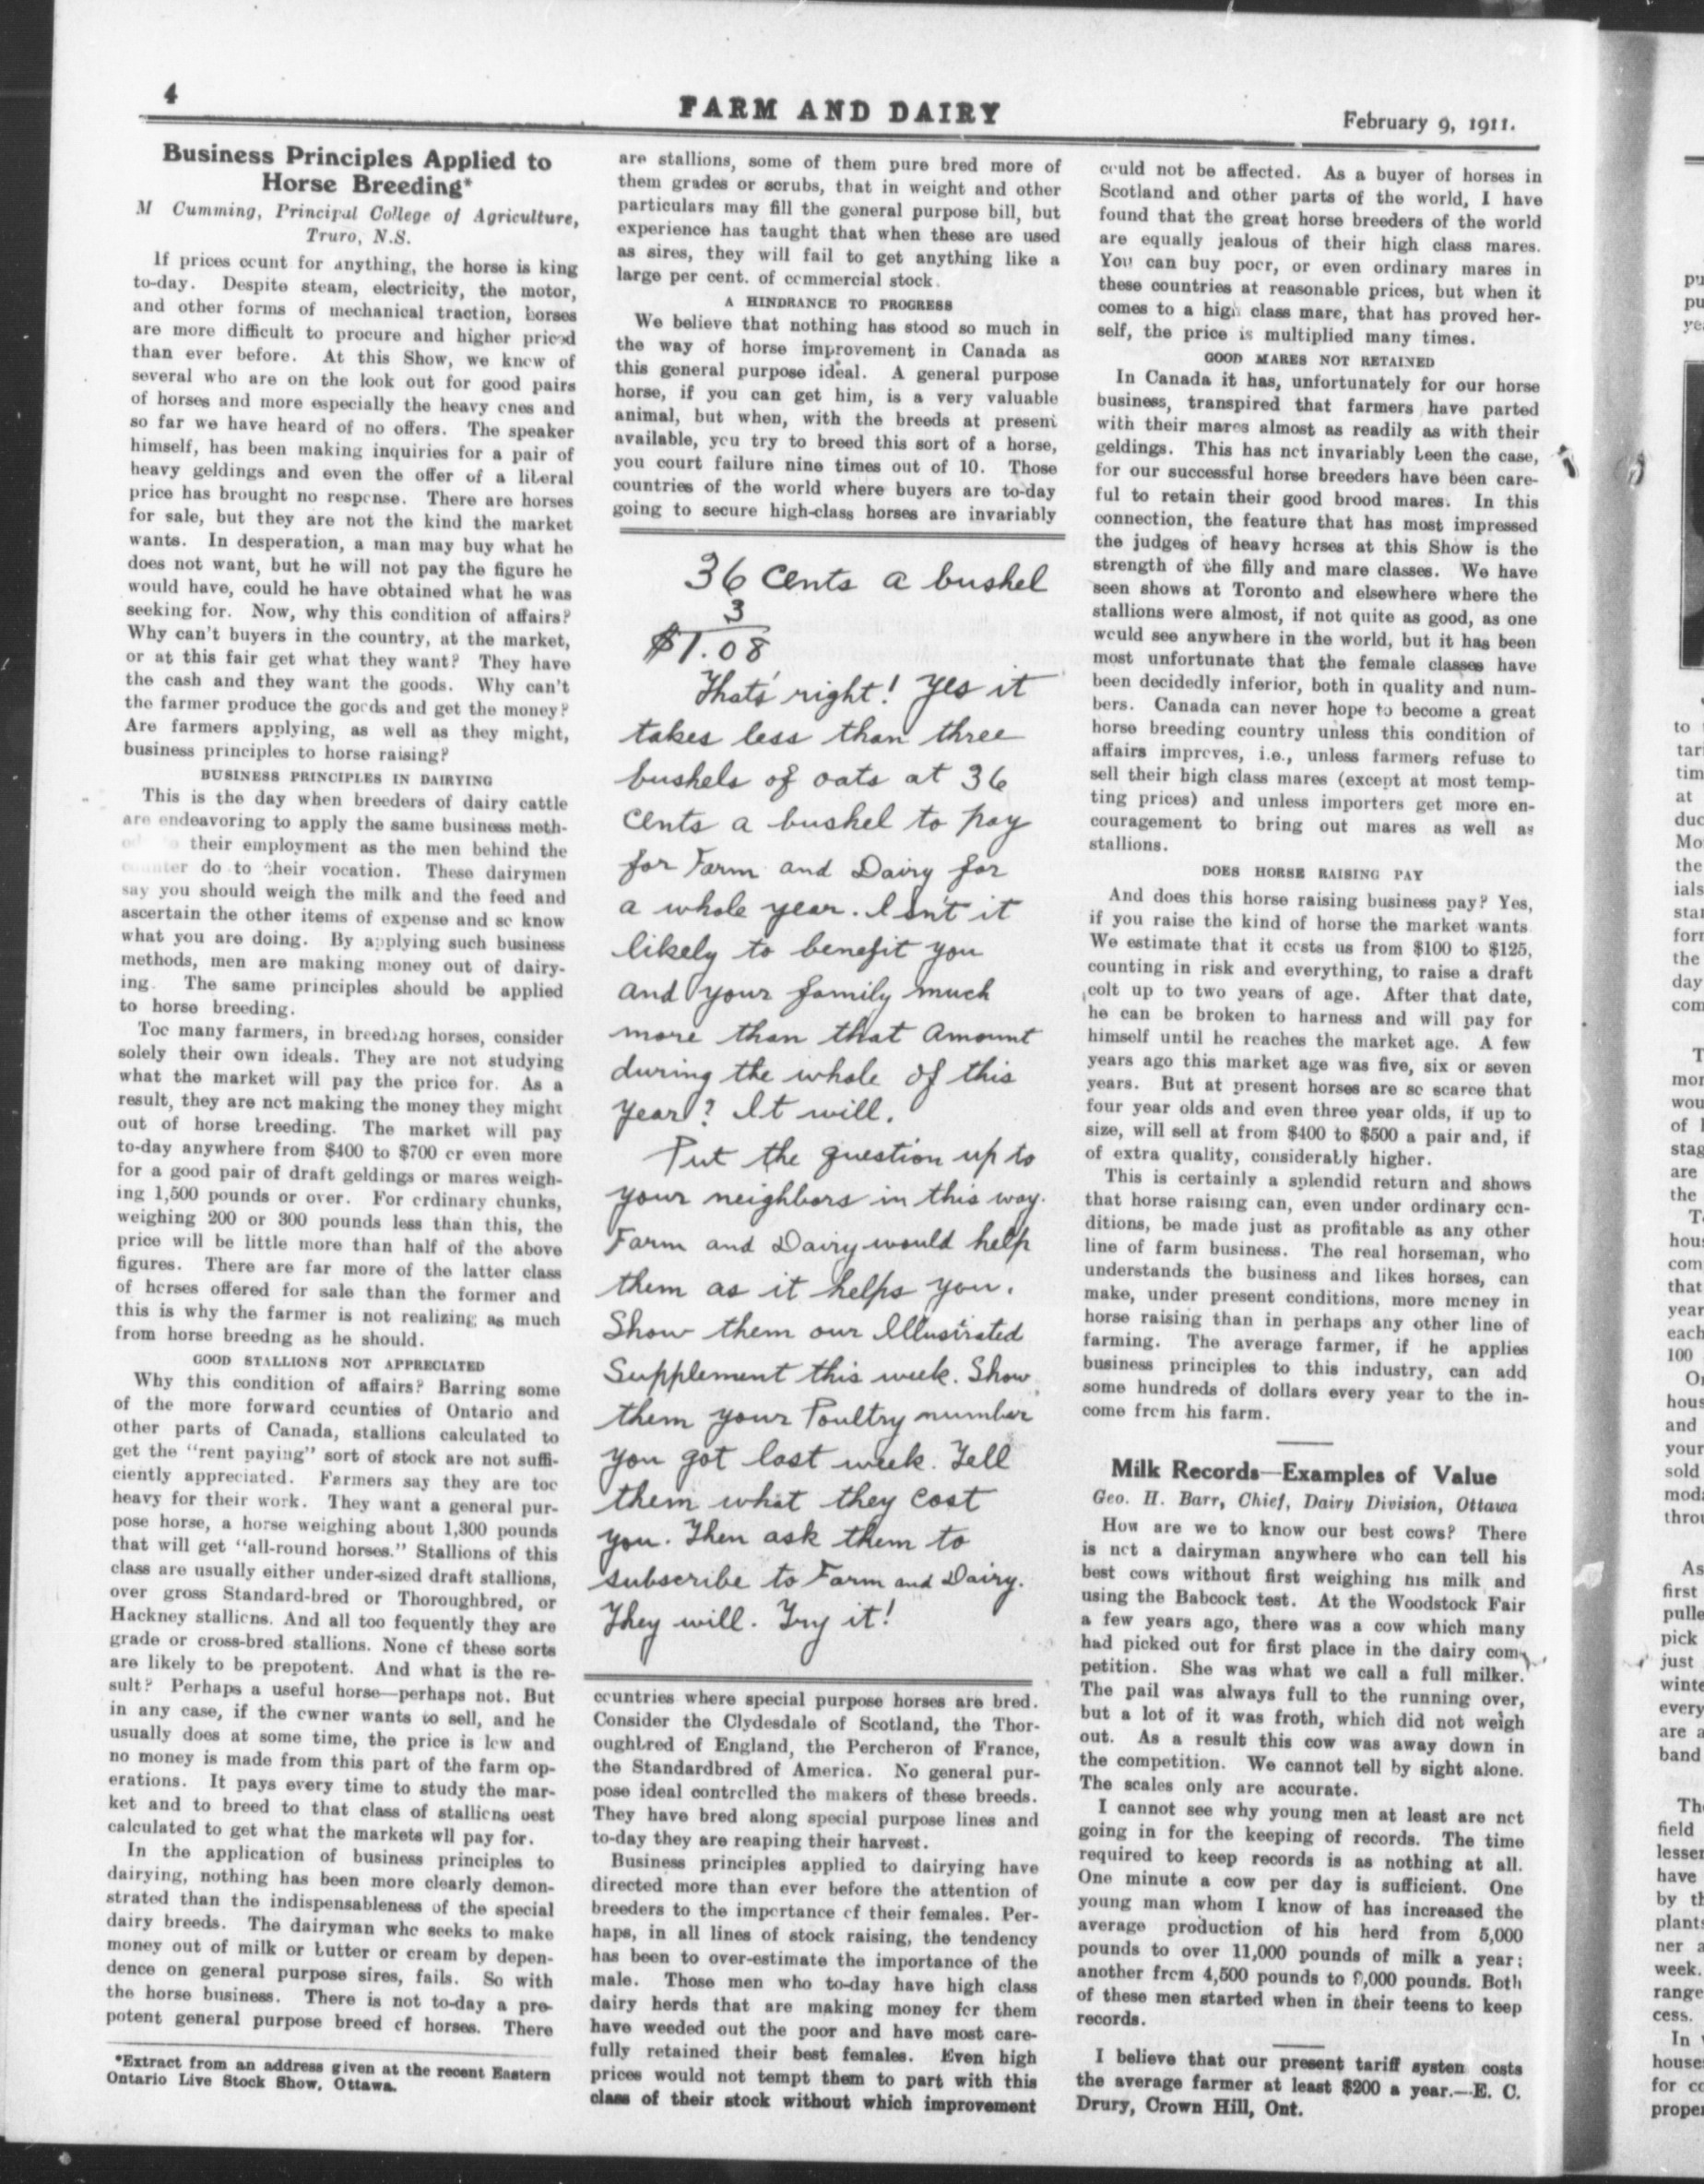 4
FARM AND DAIRY
February 9, 1911.
Business Principles Applied to
Horse Breeding*
M Cumming, Principal College of Agriculture,
Truro, N.S.
If prices count for anything, the horse is king
to-day. Despite steam, electricity, the motor,
and other forms of mechanical traction, horses
are more difficult to procure and higher priced
than ever before. At this Show, we know of
several who are on the look out for good pairs
of horses and more especially the heavy ones and
so far we have heard of no offers. The speaker
himself, has been making inquiries for a pair of
heavy geldings and even the offer of a liberal
price has brought no response. There are horses
for sale, but they are not the kind the market
wants. In desperation, a man may buy what he
does not want, but he will not pay the figure he
would have, could he have obtained what he was
seeking for. Now, why this condition of affairs?
Why can't buyers in the country, at the market,
or at this fair get what they want? They have
the cash and they want the goods. Why can't
the farmer produce the goods and get the money?
Are farmers applying, as well as they might,
business principles to horse raising?
BUSINESS PRINCIPLES IN DAIRYING
This is the day when breeders of dairy cattle
are endeavoring to apply the same business meth-
their employment as the men behind the
counter do to their vocation. These dairymen
say you should weigh the milk and the feed and
ascertain the other items of expense and so know
what you are doing. By applying such business
methods, men are making money out of dairy-
ing. The same principles should be applied
to horse breeding.
Too many farmers, in breeding horses, consider
solely their own ideals. They are not studying
what the market will pay the price for. As a
result, they are not making the money they might
out of horse breeding. The market will pay
to-day anywhere from $400 to $700 or even more
for a good pair of draft geldings or mares weigh-
ing 1,500 pounds or over. For ordinary chunks,
weighing 200 or 300 pounds less than this, the
price will be little more than half of the above
figures. There are far more of the latter class
of horses offered for sale than the former and
this is why the farmer is not realizing as much
from horse breedng as he should.
GOOD STALLIONS NOT APPRECIATED
Why this condition of affairs? Barring some
of the more forward counties of Ontario and
other parts of Canada, stallions calculated to
get the "rent paying" sort of stock are not suffi-
ciently appreciated. Farmers say they are too
heavy for their work. They want a general pur-
pose horse, a horse weighing about 1,300 pounds
that will get "all-round horses." Stallions of this
class are usually either under-sized draft stallions,
over gross Standard-bred or Thoroughbred, or
Hackney stallions. And all too fequently they are
grade or cross-bred stallions. None of these sorts
are likely to be prepotent. And what is the re-
sult? Perhaps a useful horse—perhaps not. But
in any case, if the owner wants to sell, and he
usually does at some time, the price is low and
no money is made from this part of the farm op-
erations. It pays every time to study the mar-
ket and to breed to that class of stallions best
calculated to get what the markets wll pay for.
In the application of business principles to
dairying, nothing has been more clearly demon-
strated than the indispensableness of the special
dairy breeds. The dairyman who seeks to make
money out of milk or butter or cream by depen-
dence on general purpose sires, fails. So with
the horse business. There is not to-day a pre-
potent general purpose breed of horses. There
*Extract from an address given at the recent Eastern
Ontario Live Stock Show, Ottawa.
are stallions, some of them pure bred more of
them grades or scrubs, that in weight and other
particulars may fill the general purpose bill, but
experience has taught that when these are used
as sires, they will fail to get anything like a
large per cent. of commercial stock.
A HINDRANCE TO PROGRESS
We believe that nothing has stood so much in
the way of horse improvement in Canada as
this general purpose ideal. A general purpose
horse, if you can get him, is a very valuable
animal, but when, with the breeds at present
available, you try to breed this sort of a horse,
you court failure nine times out of 10. Those
countries of the world where buyers are to-day
going to secure high-class horses are invariably
36 cents a bushel
3
$1.08
That's right! Yes it
takes less than three
bushels of oats at 36
cents a bushel to pay
for Farm and Dairy for
a whole year. Isn't it
likely to benefit you
and your family much
more than that amount
during the whole of this
year? It will.
Put the question up to
your neighbors in this way.
Farm and Dairy would help
them as it helps you.
Show them our Illustrated
Supplement this week. Show
them your Poultry number
you got last week. Tell
them what they cost
you. Then ask them to
subscribe to Farm and Dairy.
They will. Try it!
countries where special purpose horses are bred.
Consider the Clydesdale of Scotland, the Thor-
oughbred of England, the Percheron of France,
the Standardbred of America. No general pur-
pose ideal controlled the makers of these breeds.
They have bred along special purpose lines and
to-day they are reaping their harvest.
Business principles applied to dairying have
directed more than ever before the attention of
breeders to the importance of their females. Per-
haps, in all lines of stock raising, the tendency
has been to over-estimate the importance of the
male. Those men who to-day have high class
dairy herds that are making money for them
have weeded out the poor and have most care-
fully retained their best females. Even high
prices would not tempt them to part with this
class of their stock without which improvement
could not be affected. As a buyer of horses in
Scotland and other parts of the world, I have
found that the great horse breeders of the world
are equally jealous of their high class mares.
You can buy poor, or even ordinary mares in
these countries at reasonable prices, but when it
comes to a high class mare, that has proved her-
self, the price is multiplied many times.
GOOD MARES NOT RETAINED
In Canada it has, unfortunately for our horse
business, transpired that farmers have parted
with their mares almost as readily as with their
geldings. This has not invariably been the case,
for our successful horse breeders have been care-
ful to retain their good brood mares. In this
connection, the feature that has most impressed
the judges of heavy horses at this Show is the
strength of the filly and mare classes. We have
seen shows at Toronto and elsewhere where the
stallions were almost, if not quite as good, as one
would see anywhere in the world, but it has been
most unfortunate that the female classes have
been decidedly inferior, both in quality and num-
bers. Canada can never hope to become a great
horse breeding country unless this condition of
affairs improves, i.e., unless farmers refuse to
sell their high class mares (except at most temp-
ting prices) and unless importers get more en-
couragement to bring out mares as well as
stallions.
DOES HORSE RAISING PAY
And does this horse raising business pay? Yes,
if you raise the kind of horse the market wants
We estimate that it costs us from $100 to $125,
counting in risk and everything, to raise a draft
colt up to two years of age. After that date,
he can be broken to harness and will pay for
himself until he reaches the market age. A few
years ago this market age was five, six or seven
years. But at present horses are so scarce that
four year olds and even three year olds, if up to
size, will sell at from $400 to $500 a pair and, if
of extra quality, considerably higher.
This is certainly a splendid return and shows
that horse raising can, even under ordinary con-
ditions, be made just as profitable as any other
line of farm business. The real horseman, who
understands the business and likes horses, can
make, under present conditions, more money in
horse raising than in perhaps any other line of
farming. The average farmer, if he applies
business principles to this industry, can add
some hundreds of dollars every year to the in-
come from his farm.
Milk Records—Examples of Value
Geo. H. Barr, Chief, Dairy Division, Ottawa
How are we to know our best cows? There
is not a dairyman anywhere who can tell his
best cows without first weighing his milk and
using the Babcock test. At the Woodstock Fair
a few years ago, there was a cow which many
had picked out for first place in the dairy com-
petition. She was what we call a full milker.
The pail was always full to the running over,
but a lot of it was froth, which did not weigh
out. As a result this cow was away down in
the competition. We cannot tell by sight alone.
The scales only are accurate.
I cannot see why young men at least are not
going in for the keeping of records. The time
required to keep records is as nothing at all.
One minute a cow per day is sufficient. One
young man whom I know of has increased the
average production of his herd from 5,000
pounds to over 11,000 pounds of milk a year;
another from 4,500 pounds to 9,000 pounds. Both
of these men started when in their teens to keep
records.
I believe that our present tariff systen costs
the average farmer at least $200 a year.—E. C.
Drury, Crown Hill, Ont.